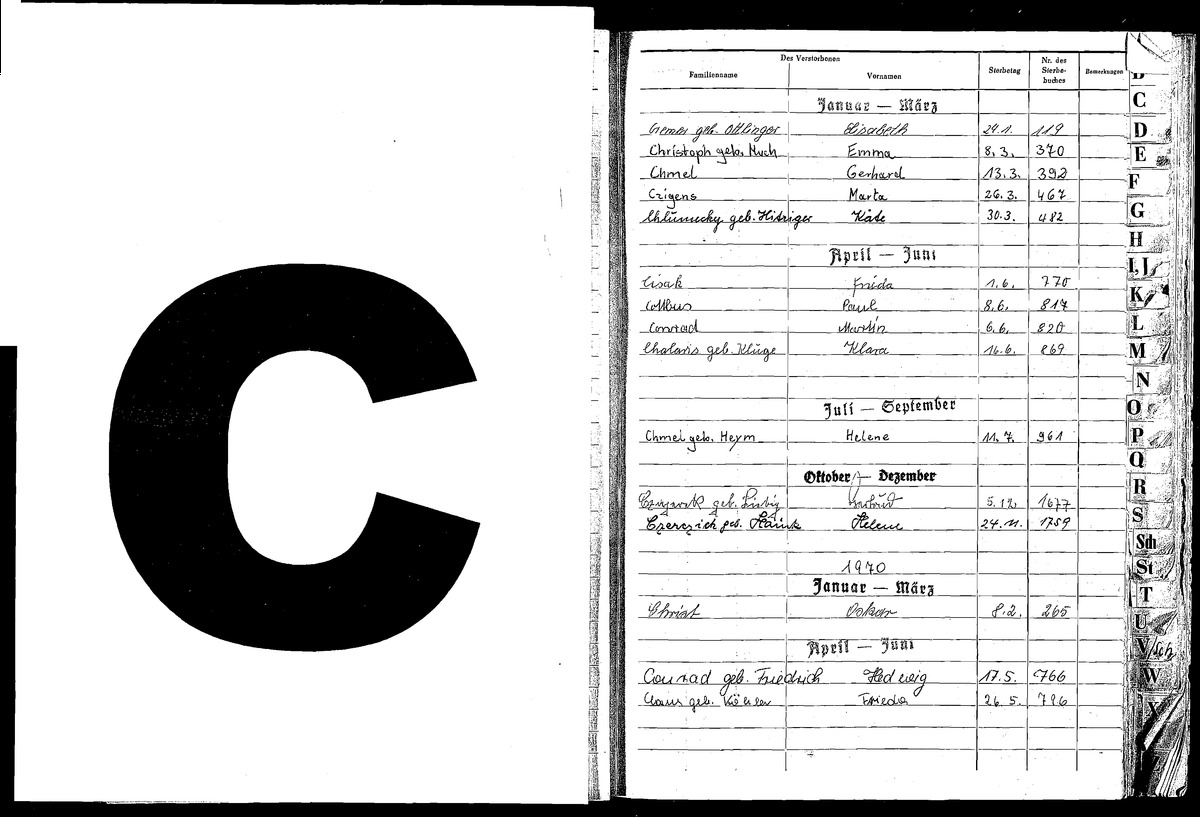 C
Des Verstorbenen
Familienname Vornamen Sterbetag Nr. des Sterbe-buches Bemerkungen
Januar — März
Cremer geb. Ottlinger Elisabeth 29.1. 119
Christoph geb. Much Emma 8.3. 370
Chmel Gerhard 13.3. 392
Czigens Marta 26.3. 467
geb. Hitziger Käte 30.3. 482
April — Juni
Cisak Frieda 1.6. 770
Cottbus Paul 8.6. 817
Conrad Martin 6.6. 820
Chalaris geb. Klüge Klara 16.6. 869
Juli — September
Chmel geb. Heym Helene 11.7. 961
Oktober — Dezember
geb. Liebig 5.12. 1677
geb. Helene 24.11. 1759
1970
Januar — März
Christ Oskar 8.2. 265
April — Juni
Conrad geb. Friedrich Hedwig 17.5. 766
Claus geb. Köhler Frieda 26.5. 796
C
D
E
F
G
H
I, J
K
L
M
N
O
P
Q
R
S
Sch
St
T
U
V
W
X